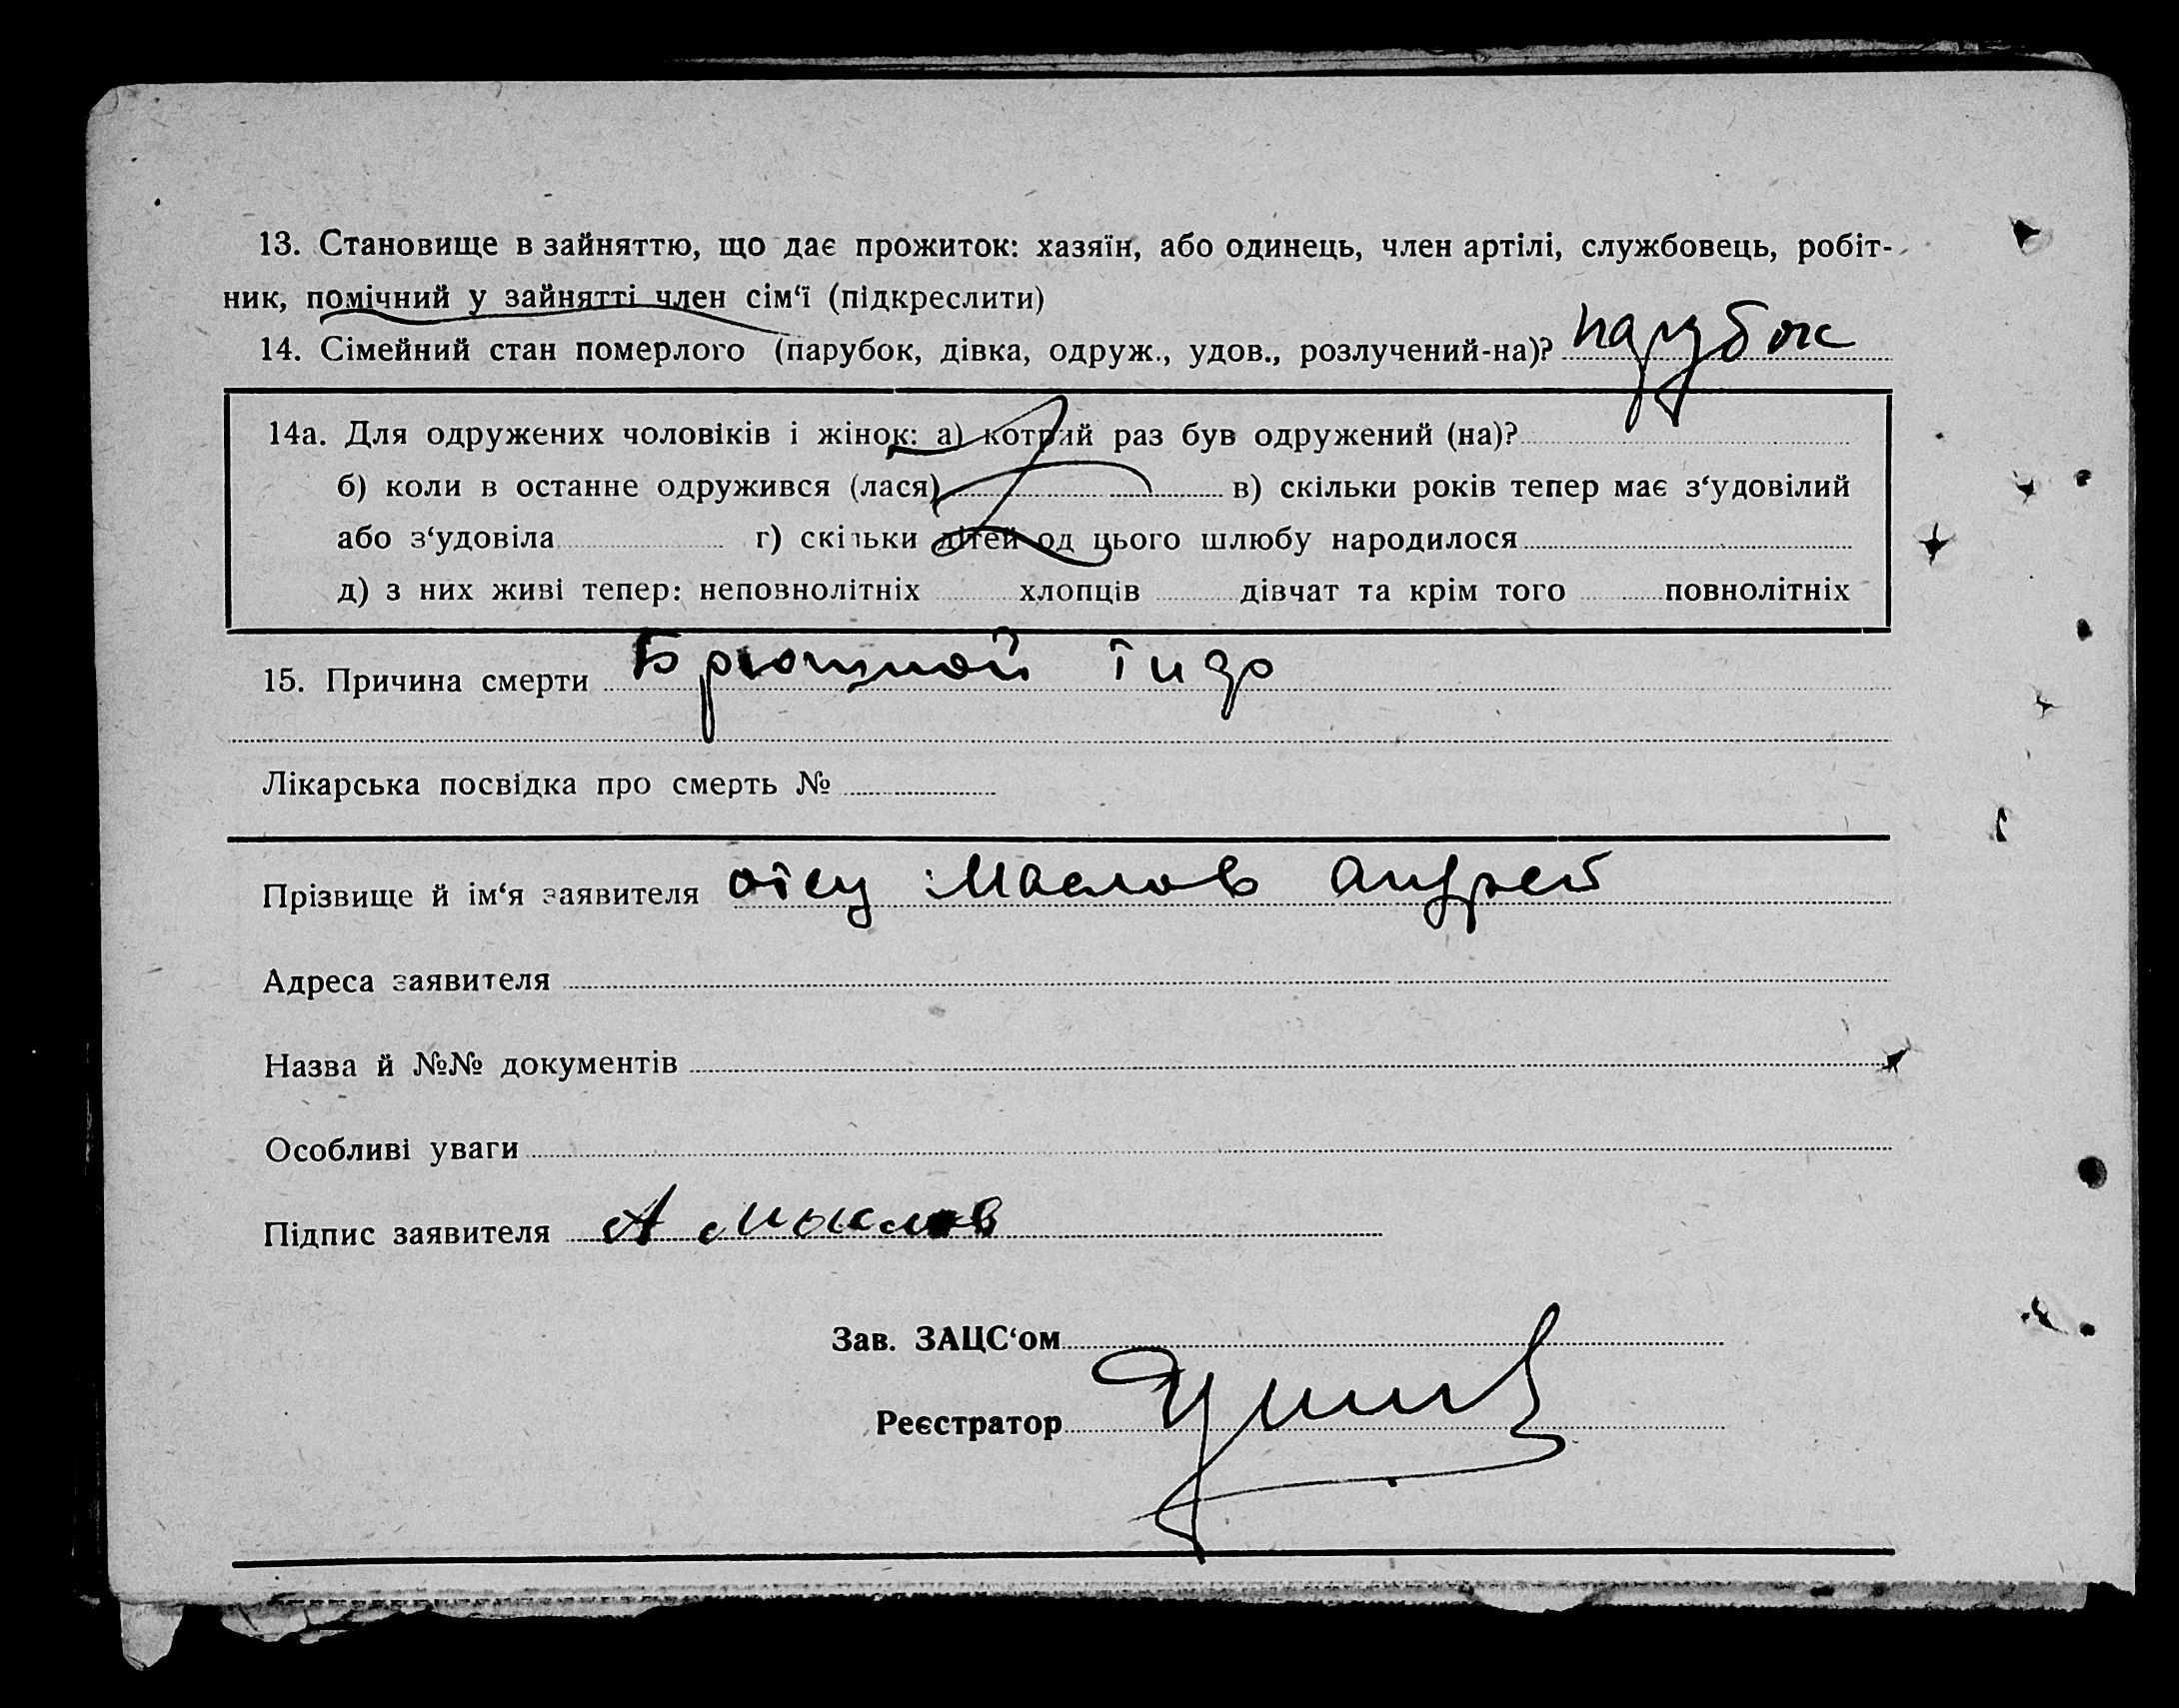 13. Становище в зайняттю, що дає прожиток: хазяїн, або одинець, член артілі, службовець, робіт-
ник, помічний у зайнятті член сім‘ї (підкреслити)
14. Сімейний стан померлого (парубок, дівка, одруж., удов., розлучений-на)? парубок
14а. Для одружених чоловіків і жінок: а) котрий раз був одружений (на)?
б) коли в останне одружився (лася) в) скільки років тепер має з‘удовілий
або з‘удовіла г) скільки дітей од цього шлюбу народилося
д) з них живі тепер: неповнолітніх хлопців дівчат та крім того повнолітніх
15. Причина смерти Брюшной тиф
Лікарська посвідка про смерть №
Прізвище й ім‘я заявителя отец Маслов Андрей
Адреса заявителя
Назва й №№ документів
Особливі уваги
Підпис заявителя А Маслов
Зав. ЗАЦС‘ом
Реєстратор